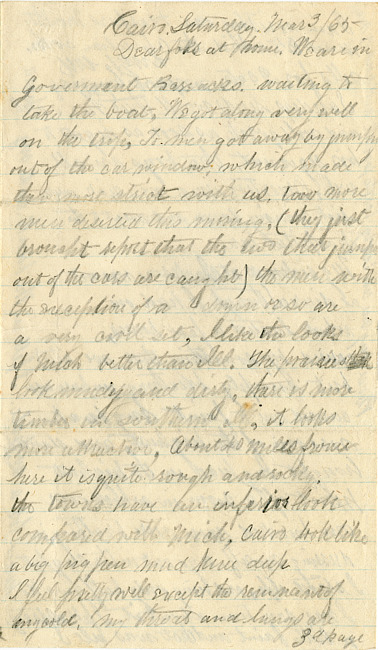 Cairo, Saturday. Mar 3/65
Dear folks at home. We are in
Goverment Barracks. waiting to
take the boat, We got along very well
on the trip, To men got away by jumpin
out of the car window, which made
them more strict with us. Two more
men deserted this morning, (they just
brought report that the two that jump
out of the cars are caught) the men with
the exception of a dozen or so are
a very civil set, I like the looks
of Mich better than Ill. The prairies
look muddy and dirty, thare is more
timber in Southern Ill, it looks
more attractive, About 40 miles from
here it is quite rough and rocky.
the towns have an inferior look
compared with Mich, Cairo look like
a big pig pen mud knee deep
I feel pretty well except the remnant of
my cold, my throat and lungs are
3d page